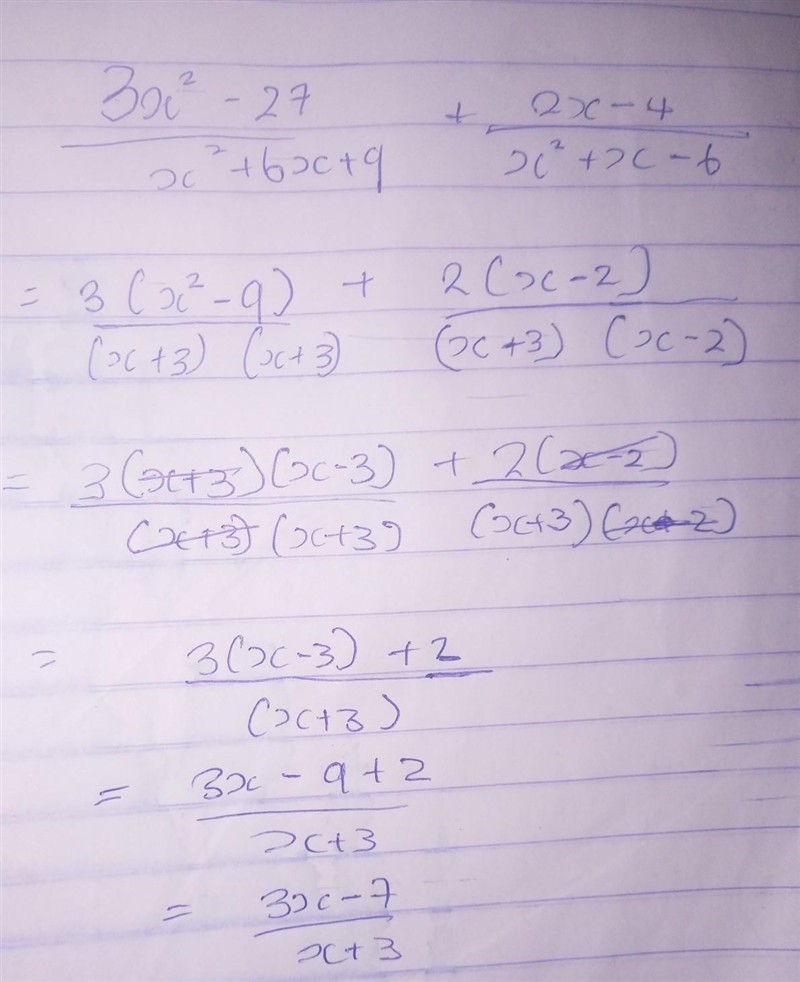 3x² - 27 / x² + 6x + 9 + 2x - 4 / x² + x - 6
= 3(x² - 9) / (x+3) (x+3) + 2(x - 2) / (x+3) (x-2)
= 3(x+3)(x-3) / (x+3)(x+3) + 2(x-2) / (x+3)(x-2)
= 3(x-3) + 2 / (x+3)
= 3x - 9 + 2 / x+3
= 3x - 7 / x+3